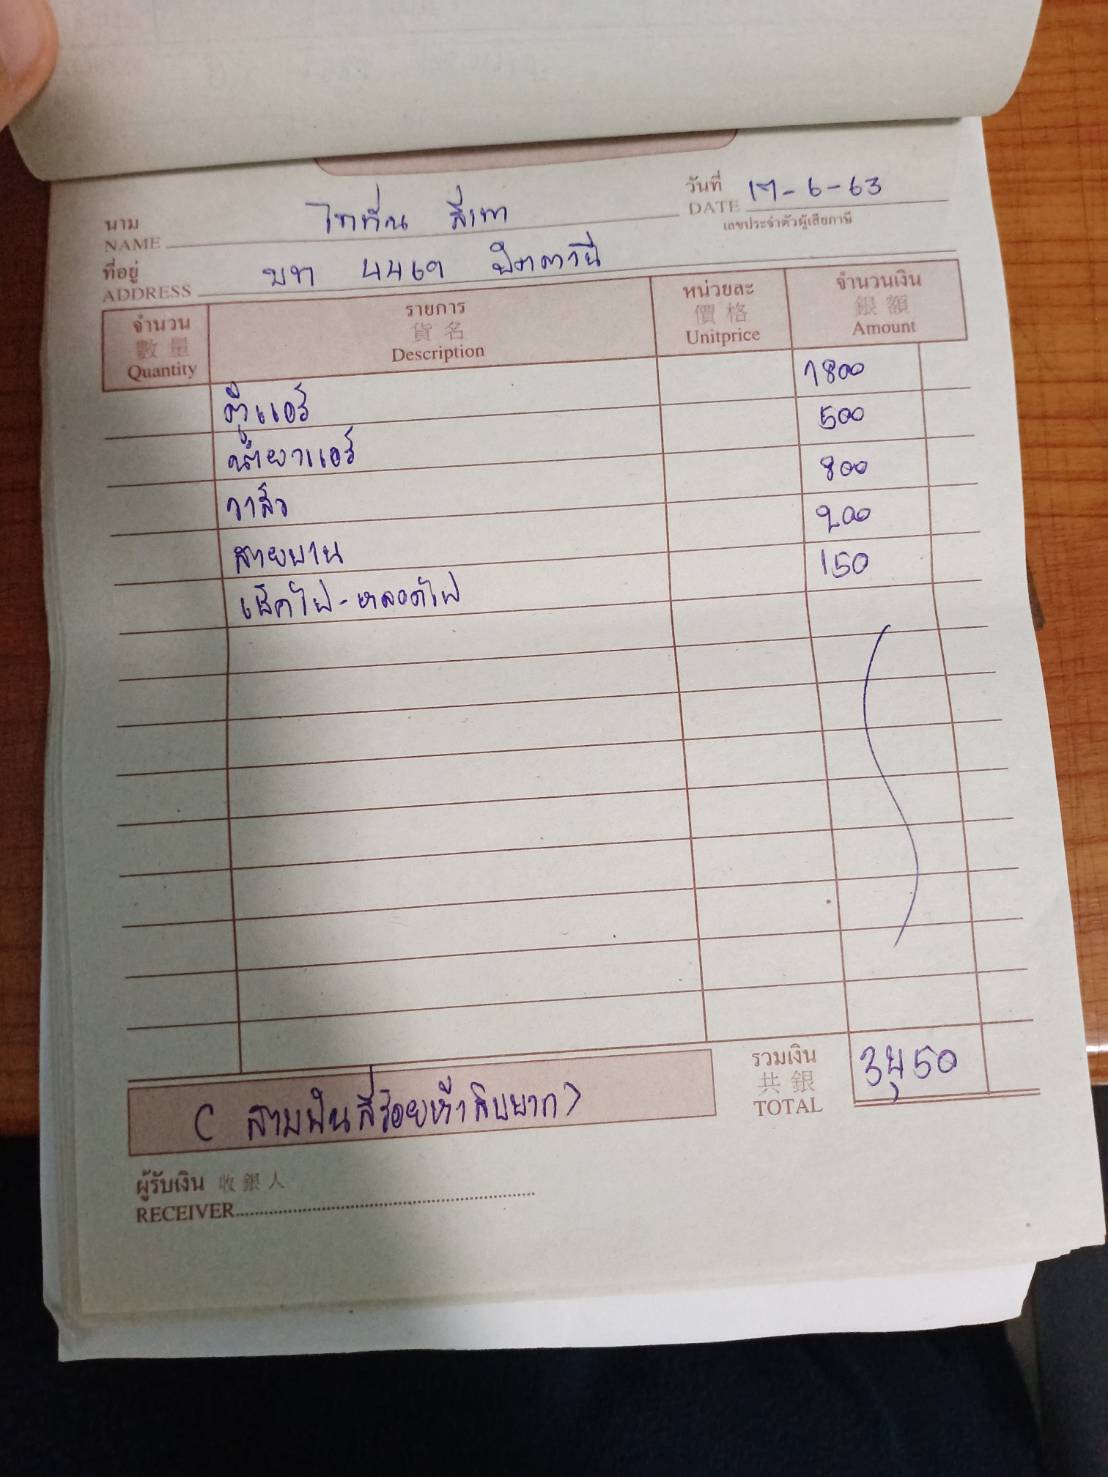 นาม
NAME ไททัน สีเทา
วันที่
DATE 17-6-63
เลขประจำตัวผู้เสียภาษี
ที่อยู่
ADDRESS บท 4467 ปัตตานี
จำนวน 數量 Quantity
รายการ 貨名 Description
หน่วยละ 價格 Unitprice
จำนวนเงิน 銀額 Amount
ตู้แอร์ 1800
น้ำยาแอร์ 500
วาล์ว 800
สายพาน 200
เช็คไฟ-หลอดไฟ 150
รวมเงิน
共銀
TOTAL 3450
( สามพันสี่ร้อยห้าสิบบาท)
ผู้รับเงิน 收銀人
RECEIVER